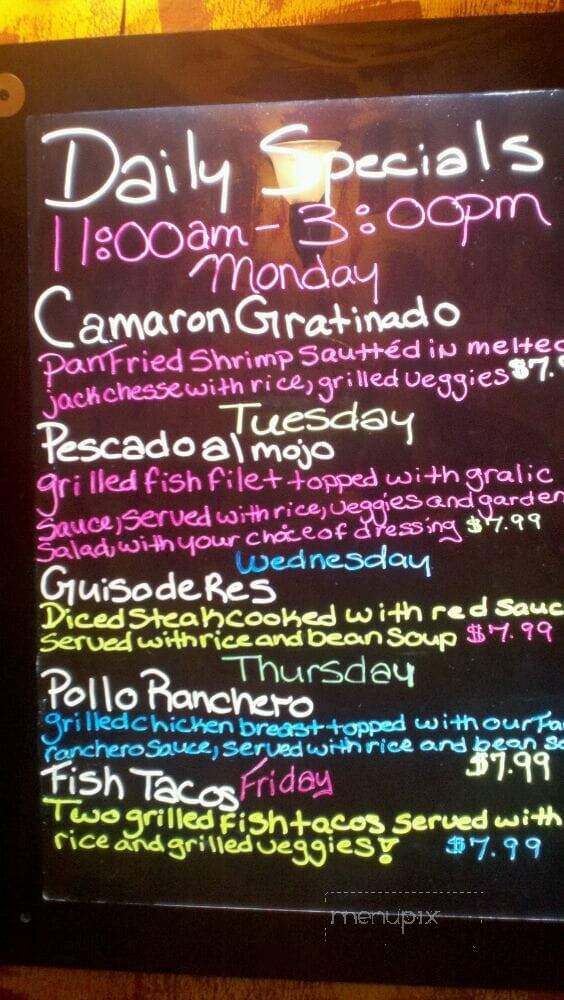 Daily Specials
11:00am - 3:00pm
Monday
Camaron Gratinado
Panfried Shrimp Sauttéd in melted
jack chesse with rice, grilled veggies $7.9
Tuesday
Pescado al mojo
grilled fish filet topped with gralic
Sauce, served with rice, veggies and garden
Salad, with your choice of dressing $7.99
Wednesday
Guiso de Res
Diced Steak cooked with red sauc
served with rice and bean soup $7.99
Thursday
Pollo Ranchero
grilled chicken breast topped with our Fa
ranchero sauce, served with rice and bean so
$7.99
Fish Tacos Friday
Two grilled fish tacos served with
rice and grilled veggies! $7.99
menupix